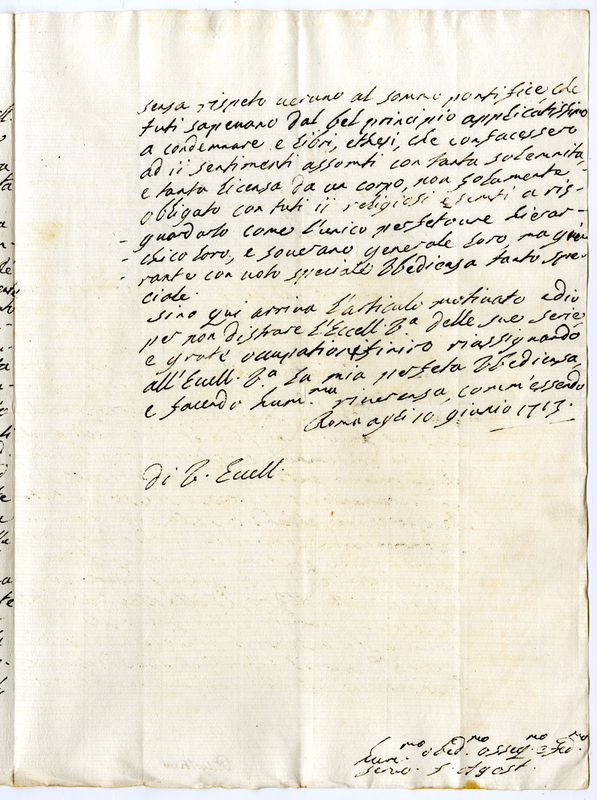 sensa rispeto veruno al sommo pontifice che
tuti sapevano dal bel principio applicatissimo
a condemnare e libri, e thesi, che confacessero
ad ii sentimenti assomti con tanta solemnita
e tanta licensa da un corpo, non solamente
obligato con tuti ii religiosi esemti a ris-
guardarlo come l'unico perfetto ierar-
chico loro, e sovrano generale loro, ma
rante con voto speciale obediensa tanto spe-
ciale.
sino qui arriva l'articulo motivato ed io
per non distrare l'Eccell. Va delle sue serie
e grate ocupationi finiro riassignando
all'Eccell. Va la mia perfeta obediensa
e facendo hum.ma riverensa, comm'essendo
Roma agli 10 giunio 1713.
di V. Eccell.
hum.mo obed.mo osseq.mo e
servo f. Agost.